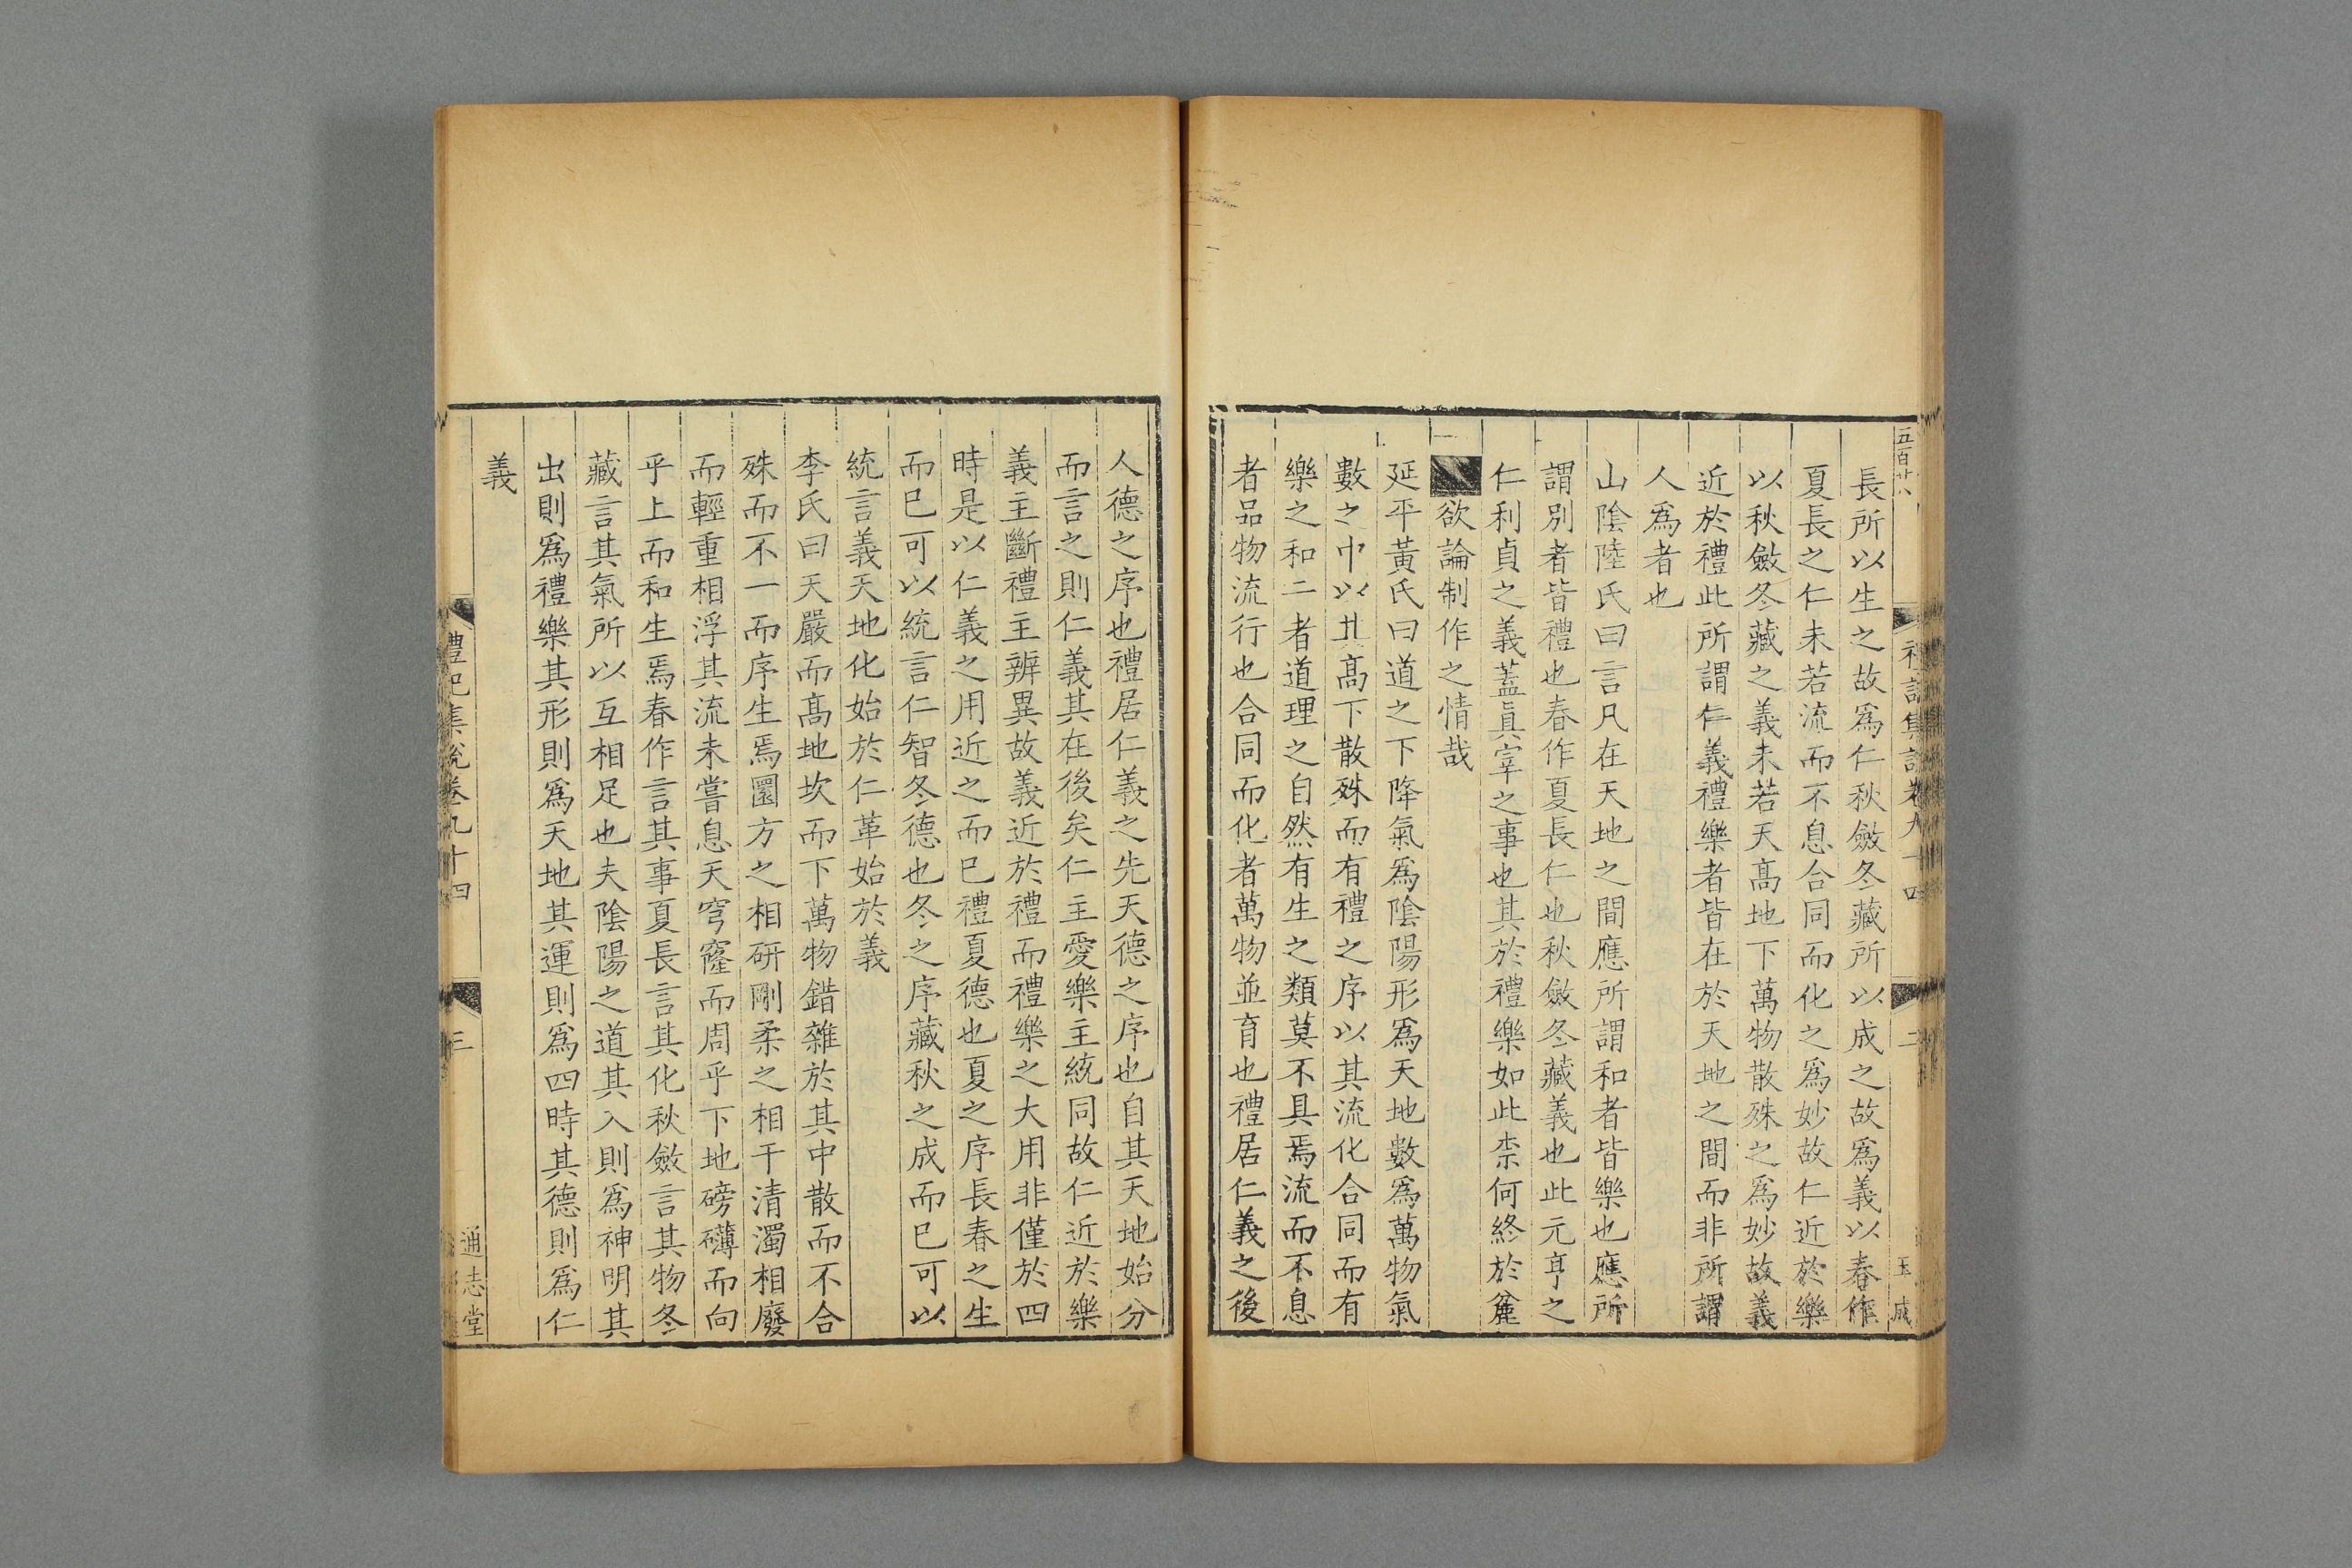 五百廿八
禮記集說卷九十四
二
玉成
長所以生之故爲仁秋斂冬藏所以成之故爲義以春作
夏長之仁未若流而不息合同而化之爲妙故仁近於樂
以秋斂冬藏之義未若天髙地下萬物散殊之爲妙故義
近於禮此所謂仁義禮樂者皆在於天地之間而非所謂
人爲者也
山隂陸氏曰言凡在天地之間應所謂和者皆樂也應所
謂別者皆禮也春作夏長仁也秋斂冬藏義也此元亨之
仁利貞之義蓋真宰之事也其於禮樂如此柰何終於麄
欲論制作之情哉
延平黃氏曰道之下降氣爲隂陽形爲天地數爲萬物氣
數之中以其髙下散殊而有禮之序以其流化合同而有
樂之和二者道理之自然有生之類莫不具焉流而不息
者品物流行也合同而化者萬物並育也禮居仁義之後
人德之序也禮居仁義之先天德之序也自其天地始分
而言之則仁義其在後矣仁主愛樂主統同故仁近於樂
義主斷禮主辨異故義近於禮而禮樂之大用非僅於四
時是以仁義之用近之而已禮夏德也夏之序長春之生
而已可以統言仁智冬德也冬之序藏秋之成而已可以
統言義天地化始於仁革始於義
李氏曰天嚴而髙地坎而下萬物錯雜於其中散而不合
殊而不一而序生焉圜方之相研剛柔之相干清濁相廢
而輕重相浮其流未嘗息天穹窿而周乎下地磅礴而向
乎上而和生焉春作言其事夏長言其化秋斂言其物冬
藏言其氣所以互相足也夫隂陽之道其入則爲神明其
出則爲禮樂其形則爲天地其運則爲四時其德則爲仁
義
禮記集說卷九十四
三
通志堂